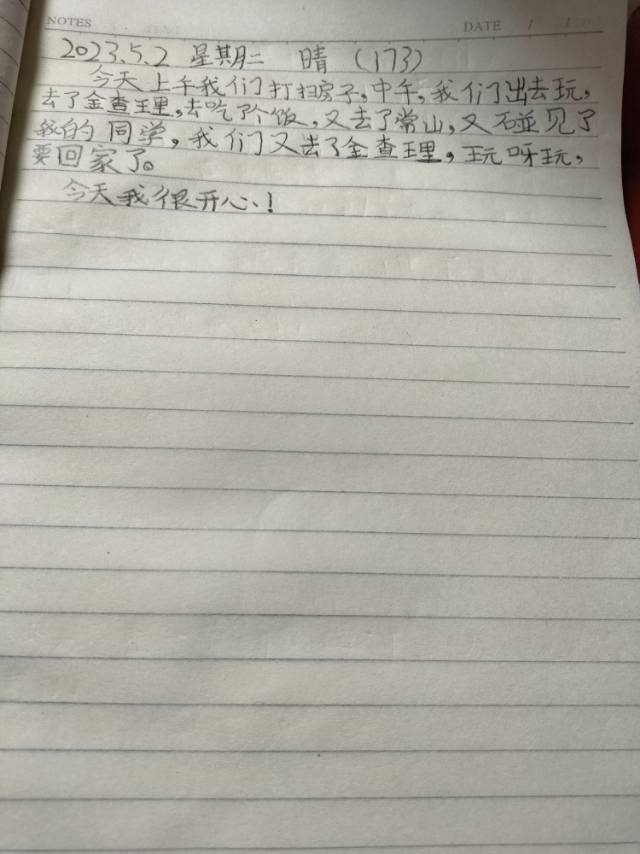 NOTES
DATE / /
2023.5.2 星期二 晴 (173)
今天上午我们打扫房子,中午,我们出去玩,
去了金查理里,去吃了个饭,又去了常山,又碰见了
我的同学,我们又去了金查理,玩呀玩,
要回家了。
今天我很开心!